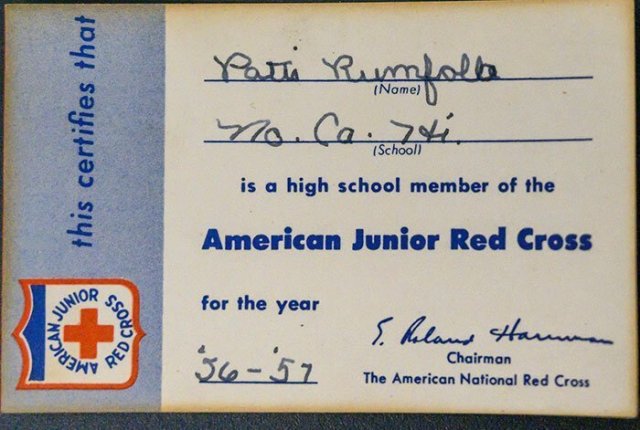 this certifies that
Patti Rumfolla
(Name)
No. Ca. Hi.
(School)
is a high school member of the
American Junior Red Cross
for the year
E. Roland Harriman
Chairman
'56-'57
The American National Red Cross
AMERICAN JUNIOR RED CROSS